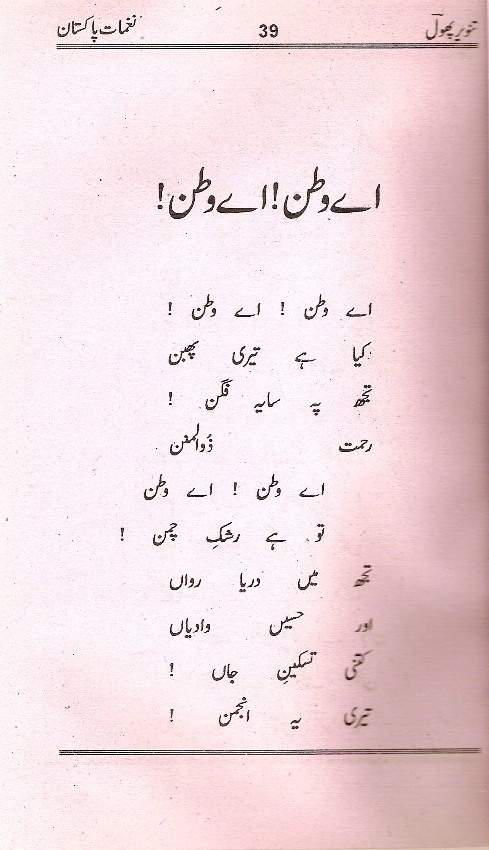 تنویر پھولؔ 39 نغماتِ پاکستان
اے وطن! اے وطن!
اے وطن ! اے وطن !
کیا ہے تیری پھبن
تجھ پہ سایہ فگن !
رحمت ذُوالمنن
اے وطن ! اے وطن
تو ہے رشکِ چمن !
تجھ میں دریا رواں
اور حسیں وادیاں
کتنی تسکینِ جاں !
تیری یہ انجمن !